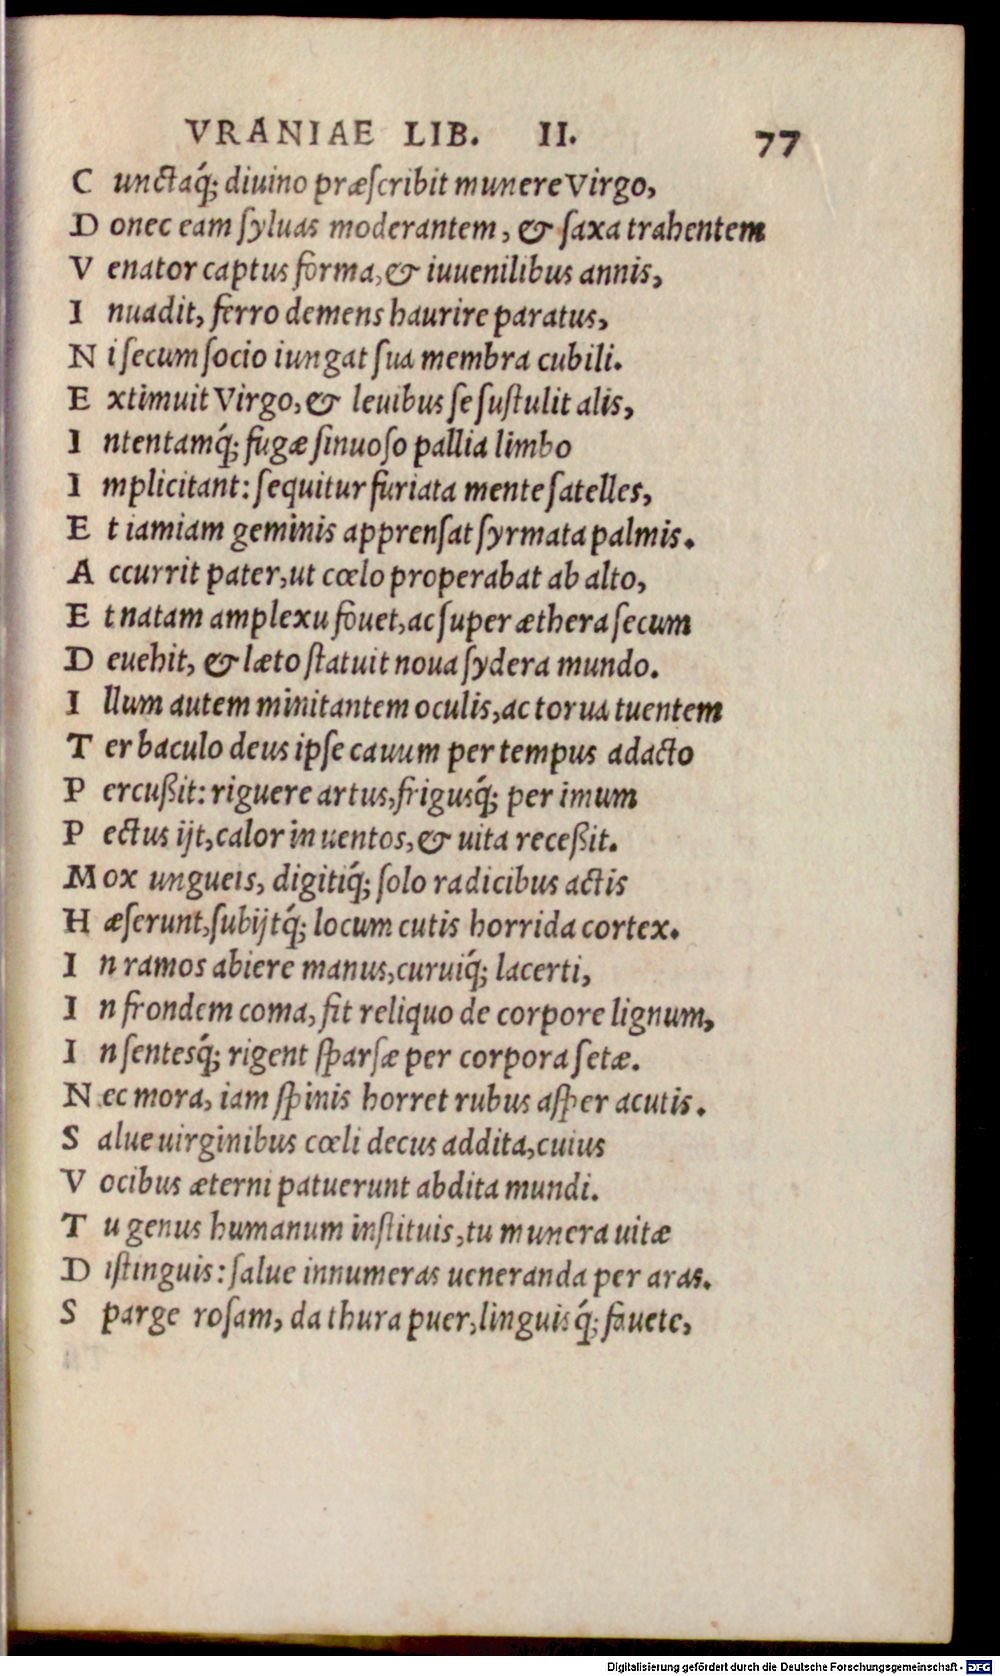 VRANIAE LIB. II. 77
C unctaq́; diuino præſcribit munere Virgo,
D onec eam ſyluas moderantem, & ſaxa trahentem
V enator captus forma, & iuuenilibus annis,
I nuadit, ferro demens haurire paratus,
N i ſecum ſocio iungat ſua membra cubili.
E xtimuit Virgo, & leuibus ſe ſuſtulit alis,
I ntentamq́; fugæ ſinuoſo pallia limbo
I mplicitant: ſequitur furiata mente ſatelles,
E t iamiam geminis apprenſat ſyrmata palmis.
A ccurrit pater, ut cœlo properabat ab alto,
E t natam amplexu fouet, ac ſuper æthera ſecum
D euehit, & læto ſtatuit noua ſydera mundo.
I llum autem minitantem oculis, ac torua tuentem
T er baculo deus ipſe cauum per tempus adacto
P ercußit: riguere artus, frigusq́; per imum
P ectus ijt, calor in uentos, & uita receßit.
M ox ungueis, digitiq́; ſolo radicibus actis
H æſerunt, ſubijtq́; locum cutis horrida cortex.
I n ramos abiere manus, curuiq́; lacerti,
I n frondem coma, fit reliquo de corpore lignum,
I n ſentesq́; rigent ſparſæ per corpora ſetæ.
N ec mora, iam ſpinis horret rubus aſper acutis.
S alue uirginibus cœli decus addita, cuius
V ocibus æterni patuerunt abdita mundi.
T u genus humanum inſtituis, tu munera uitæ
D iſtinguis: ſalue innumeras ueneranda per aras.
S parge roſam, da thura puer, linguisq́; fauete,
Digitalisierung gefördert durch die Deutsche Forschungsgemeinschaft - DFG